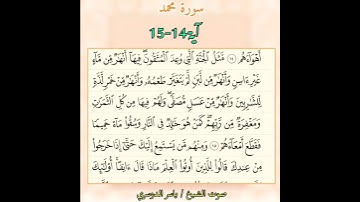 سورة محمد
آية 14-15
أَهْوَآءَهُم ١٤ مَّثَلُ ٱلْجَنَّةِ ٱلَّتِى وُعِدَ ٱلْمُتَّقُونَ ۖ فِيهَآ أَنْهَٰرٌ مِّن مَّآءٍ
غَيْرِ ءَاسِنٍ وَأَنْهَٰرٌ مِّن لَّبَنٍ لَّمْ يَتَغَيَّرْ طَعْمُهُۥ وَأَنْهَٰرٌ مِّنْ خَمْرٍ لَّذَّةٍ
لِّلشَّٰرِبِينَ وَأَنْهَٰرٌ مِّنْ عَسَلٍ مُّصَفًّى ۖ وَلَهُمْ فِيهَا مِن كُلِّ ٱلثَّمَرَٰتِ
وَمَغْفِرَةٌ مِّن رَّبِّهِمْ ۖ كَمَنْ هُوَ خَٰلِدٌ فِى ٱلنَّارِ وَسُقُوا۟ مَآءً حَمِيمًا
فَقَطَّعَ أَمْعَآءَهُمْ ١٥ وَمِنْهُم مَّن يَسْتَمِعُ إِلَيْكَ حَتَّىٰٓ إِذَا خَرَجُوا۟
مِنْ عِندِكَ قَالُوا۟ لِلَّذِينَ أُوتُوا۟ ٱلْعِلْمَ مَاذَا قَالَ ءَانِفًا ۚ أُو۟لَٰٓئِكَ
صوت الشيخ / ياسر الدوسري